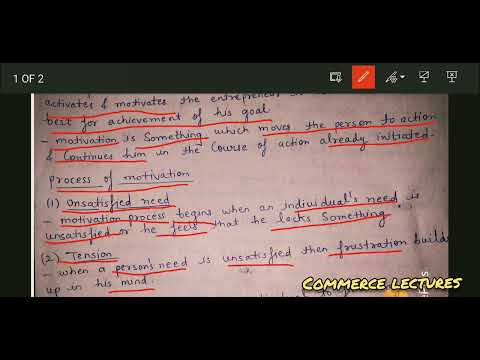 1 OF 2
activates & motivates the entrepreneur
best for achievement of his goal
- motivation is something which moves the person to action
& Continues him in the Course of action already initiated.
Process of motivation
(1) Unsatisfied need
- motivation process begins when an individual's need is
unsatisfied or he feels that he lacks Something.
(2) Tension
- when a person's need is unsatisfied then frustration builds
up in his mind.
COMMERCE LECTURES